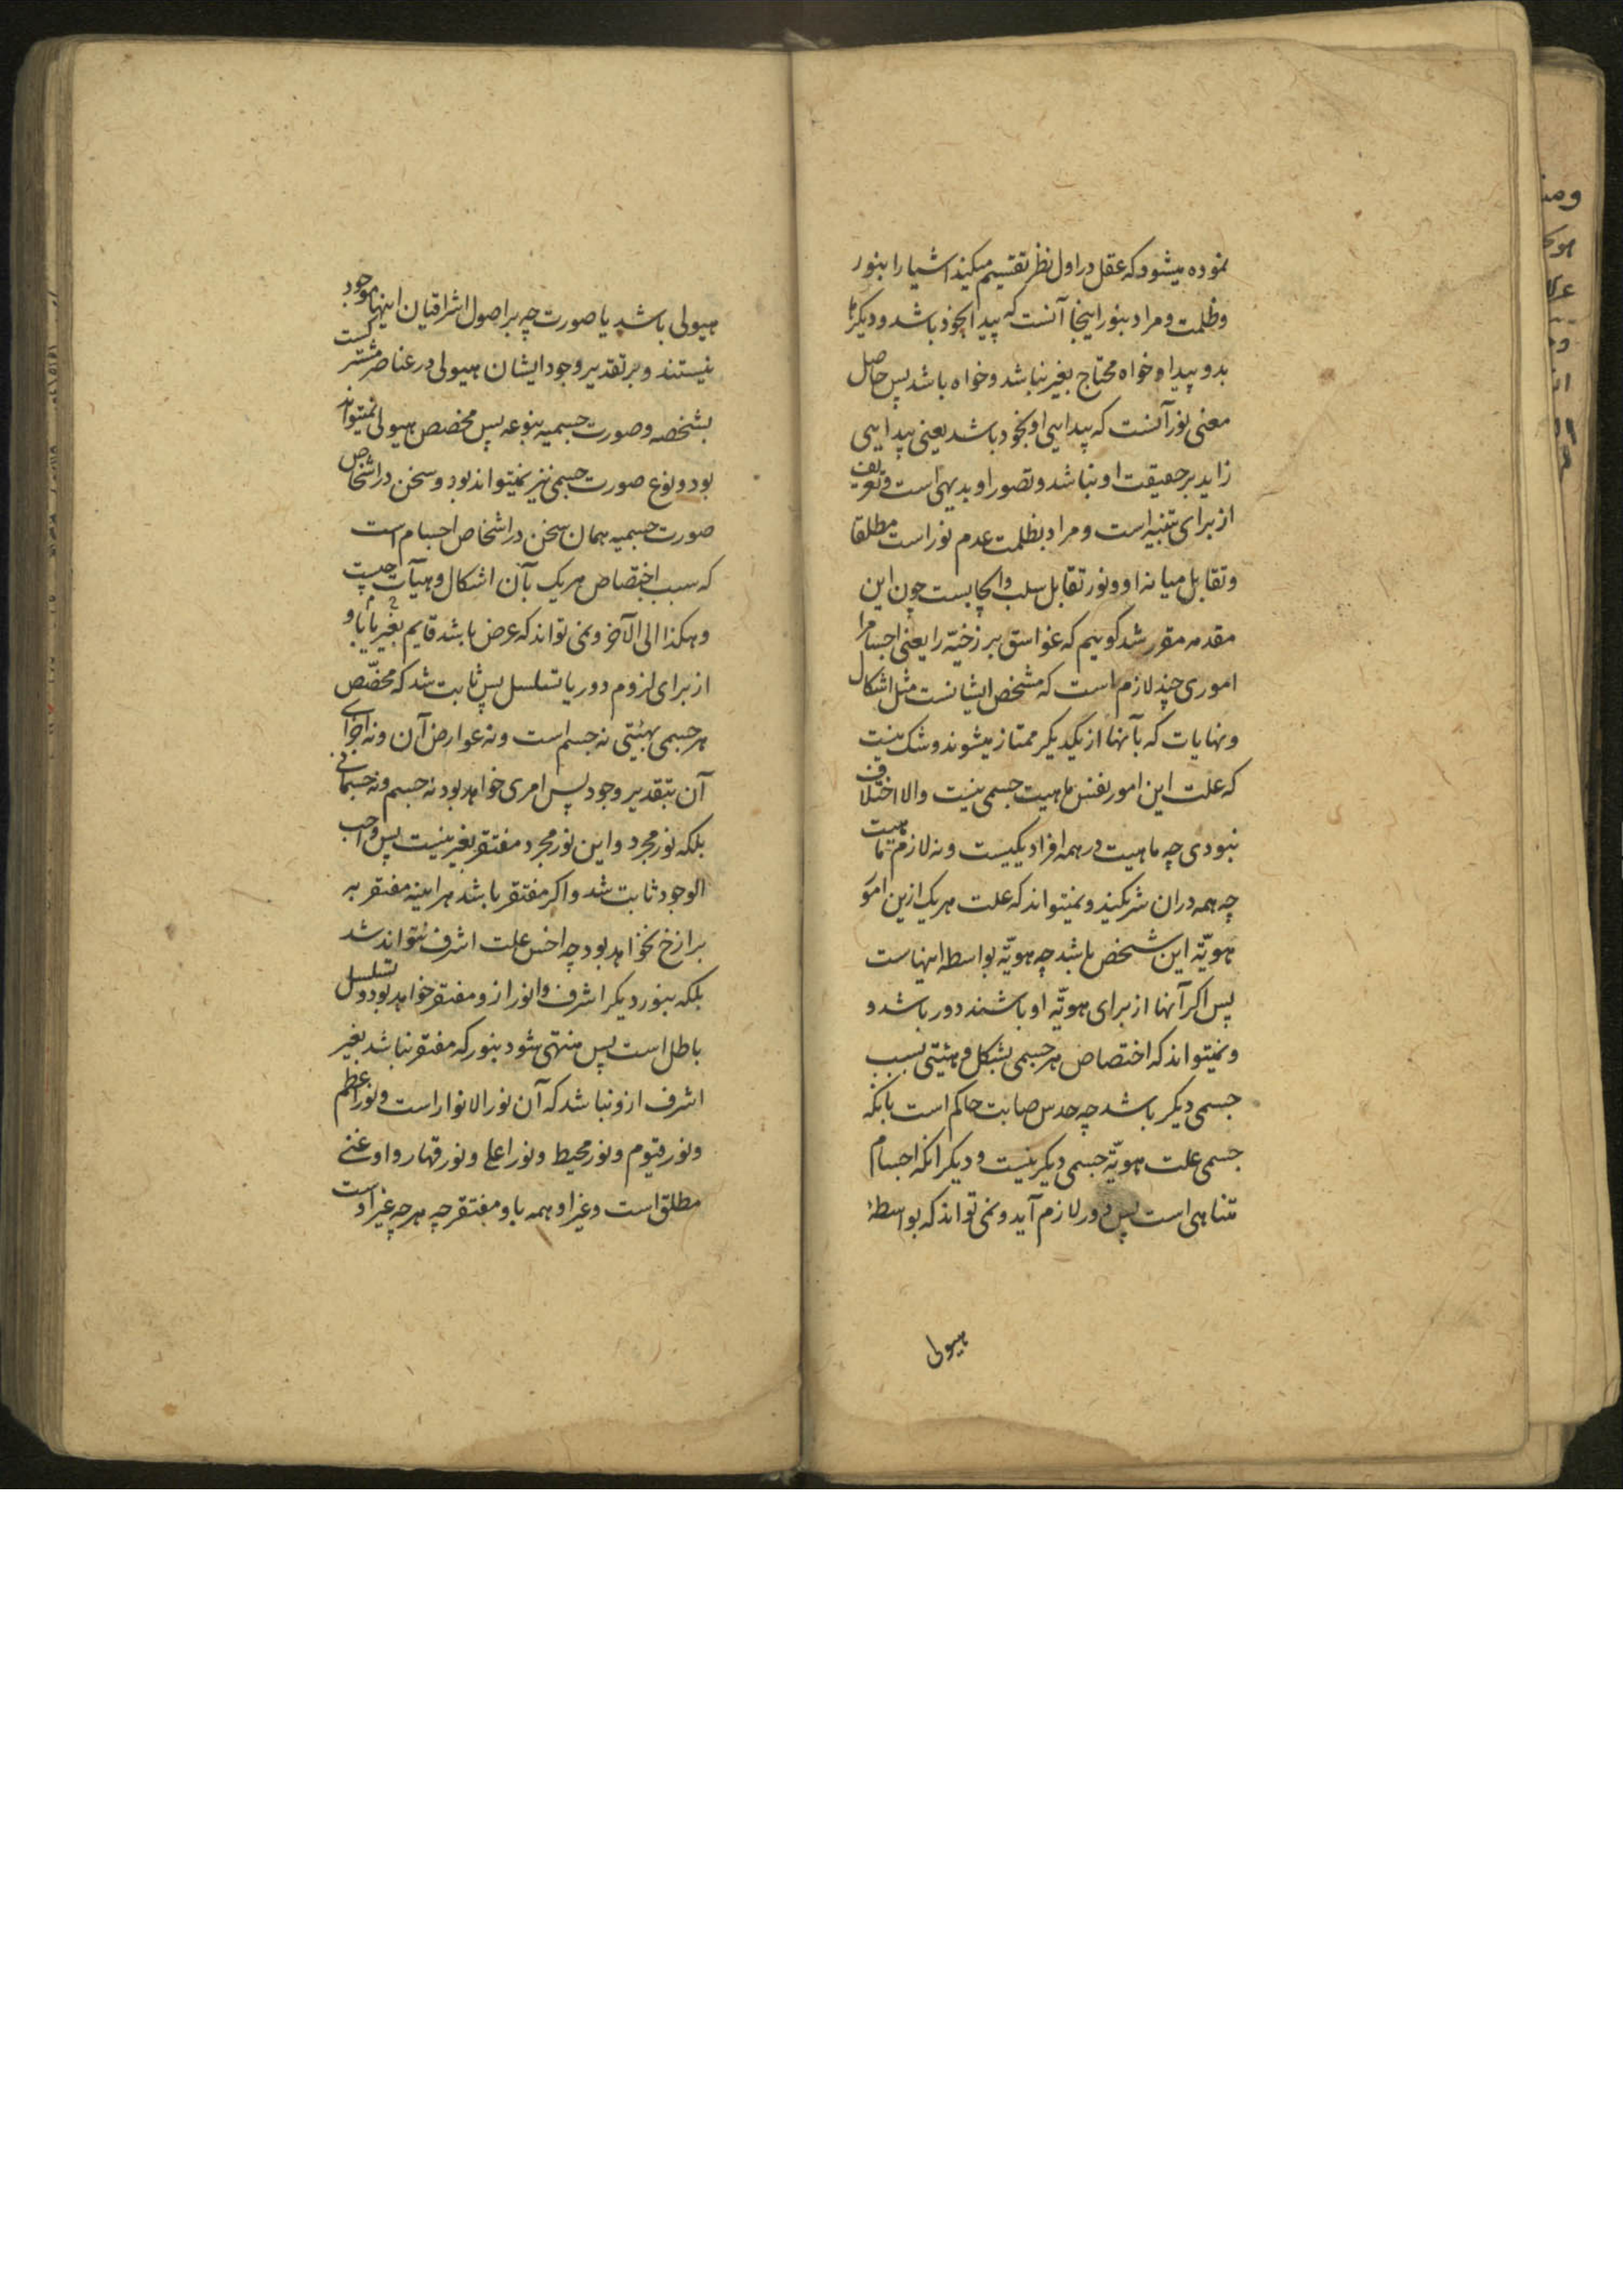 نموده میشود که عقل در اول نظر تقسیم میکند اشیا را بنور
و ظلمت و مراد بنور اینجا آنست که پیدا بخود باشد و دیگرها
بدو پیدا و خواه محتاج بغیر نباشد و خواه باشد پس حاصل
معنی نور آنست که پیدایی او بخود باشد یعنی پیدایی
زاید بر حقیقت او نباشد و تصور او بدیهی است و تعریف
از برای تنبیه است و مراد بظلمت عدم نور است مطلقا
و تقابل میانه او و نور تقابل سلب و ایجابست چون این
مقدمه مقرر شد گوییم که غواسق برزخیّه را یعنی اجسام را
اموری چند لازم است که مشخص ایشانست مثل اشکال
و نهایات که بآنها از یکدیگر ممتاز میشوند و شک نیست
که علت این امور نفس ماهیت جسمی نیست والا اختلاف
نبودی چه ماهیت در همه افراد یکیست و نه لازم ماهیت
چه همه در ان شریکند و نمیتواند که علت هریک ازین امور
هویّه این شخص باشد چه هویّه بواسطه اینهاست
پس اگر آنها از برای هویّه او باشند دور باشد و
و نمیتواند که اختصاص هر جسمی بشکل و هیئتی بسبب
جسمی دیگر باشد چه حدس صایب حاکم است بانکه
جسمی علت هویّه جسمی دیگر نیست و دیگر انکه اجسام
متناهی است پس دور لازم آید و نمی تواند که بواسطهٔ
هیولی
هیولی باشد یا صورت چه بر اصول اشراقیان اینها موجود
نیستند و بر تقدیر وجود ایشان هیولی در عناصر مشترکست
بشخصه و صورت جسمیه بنوعه پس مخصص هیولی نمیتواند
بود و نوع صورت جسمی نیز نمیتواند بود و سخن در اشخاص
صورت جسمیه همان سخن در اشخاص اجسام است
که سبب اختصاص هریک بآن اشکال و هیآت چیست
و هکذا الی الآخر و نمی تواند که عرض باشد قایم بغیر یا باو
از برای لزوم دور یا تسلسل پس ثابت شد که مخصّص
هر جسمی بهیئتی نه جسم است و نه عوارض آن و نه اجزای
آن بتقدیر وجود پس امری خواهد بود نه جسم و نه جسمانی
بلکه نور مجرد و این نور مجرد مفتقر بغیر نیست پس واجب
الوجود ثابت شد و اگر مفتقر باشد هراینه مفتقر به
برازخ نخواهد بود چه اخس علت اشرف نتواند شد
بلکه بنور دیگر اشرف و انور ازو مفتقر خواهد بود و تسلسل
باطل است پس منتهی شود بنور که مفتقر نباشد بغیر
اشرف ازو نباشد که آن نور الانوار است و نور اعظم
و نور قیوم و نور محیط و نور اعلی و نور قهار و او غنی
مطلق است و غیر او همه باو مفتقر چه هرچه غیر اوست